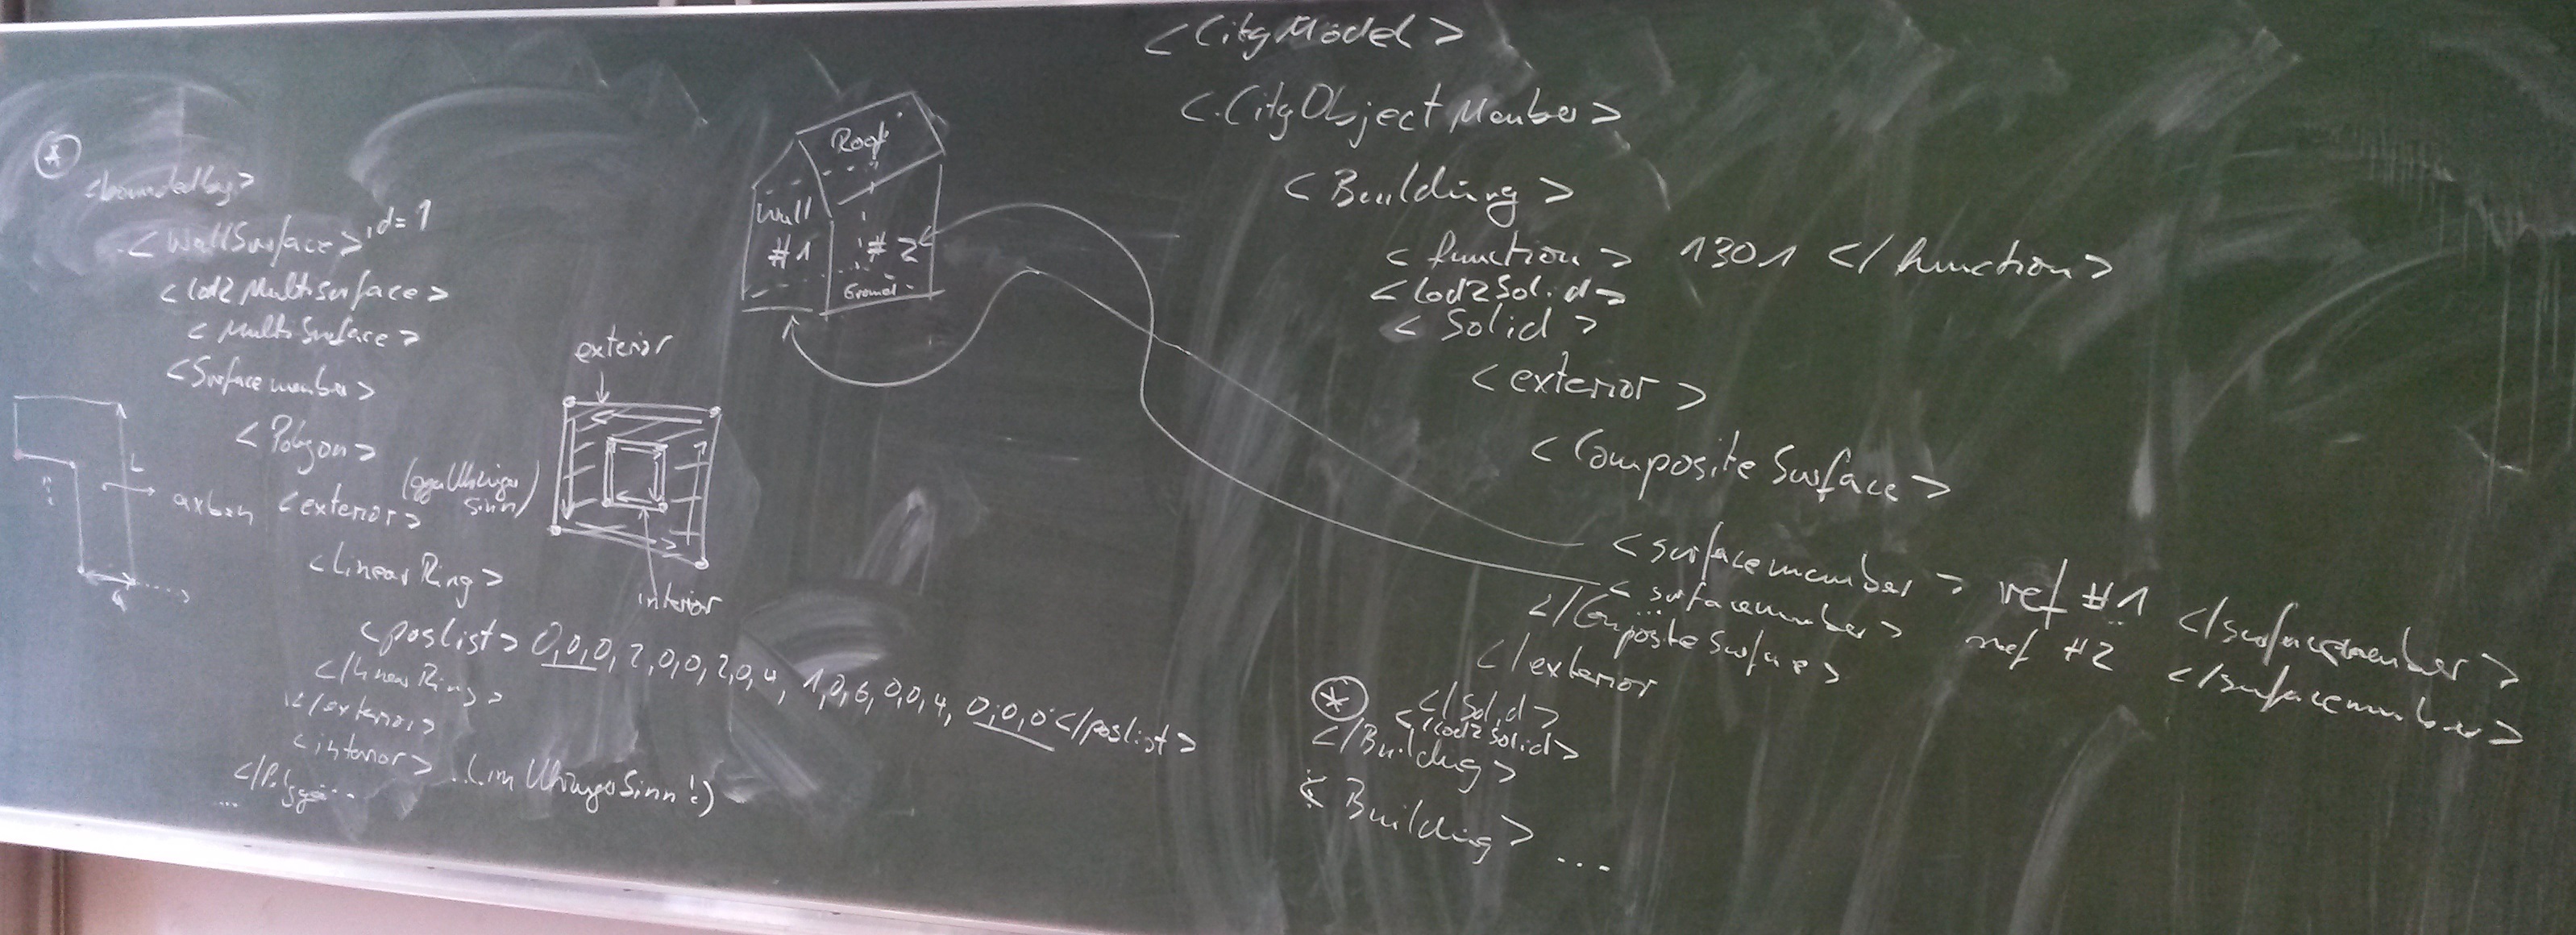 <CityModel>
<CityObjectMember>
<Building>
<function> 1301 </function>
<lod2Solid>
<Solid>
<exterior>
<CompositeSurface>
<surfacemember> ref #1 </surfacemember>
<surfacemember> ref #2 </surfacemember>
...
</CompositeSurface>
</exterior
</Solid>
<lod2Solid>
*
</Building>
<Building> ...
*
<boundedby>
<WallSurface> id=1
<lod2MultiSurface>
<MultiSurface>
<Surfacemember>
<Polygon>
<exterior> (gg. Uhrzeiger
sinn)
<linearRing>
<poslist> 0,0,0, 2,0,0, 2,0,4, 1,0,6, 0,0,4, 0,0,0 </poslist>
</linearRing>
</exterior>
<interior> ... (im Uhrzeigersinn!)
</Polygon...
...
axb=n
a
exterior
interior
Roof
Wall
#1
#2
Ground